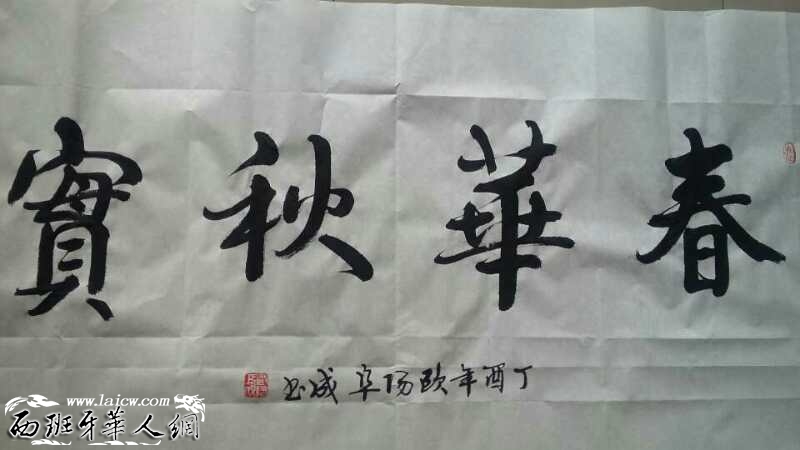 春華秋實
丁酉年欧阳阜成书
www.laicw.com
西班牙華人網